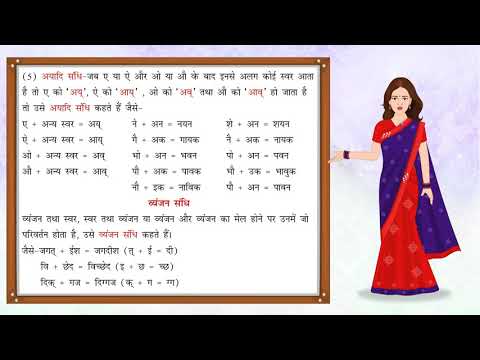 (5) अयादि संधि-जब ए या ऐ और ओ या औ के बाद इनसे अलग कोई स्वर आता
है तो ए को 'अय्', ऐ को 'आय्' , ओ को 'अव्' तथा औ को 'आव्' हो जाता है
तो उसे अयादि संधि कहते हैं जैसे-
ए + अन्य स्वर = अय् ने + अन = नयन शे + अन = शयन
ऐ + अन्य स्वर = आय् गै + अक = गायक नै + अक = नायक
ओ + अन्य स्वर = अव् भो + अन = भवन पो + अन = पवन
औ + अन्य स्वर = आव् पौ + अक = पावक भौ + उक = भावुक
नौ + इक = नाविक पौ + अन = पावन
व्यंजन संधि
व्यंजन तथा स्वर, स्वर तथा व्यंजन या व्यंजन और व्यंजन का मेल होने पर उनमें जो
परिवर्तन होता है, उसे व्यंजन संधि कहते हैं।
जैसे-जगत् + ईश = जगदीश (त् + ई = दी)
वि + छेद = विच्छेद (इ + छ = च्छ)
दिक् + गज = दिग्गज (क् + ग = ग्ग)